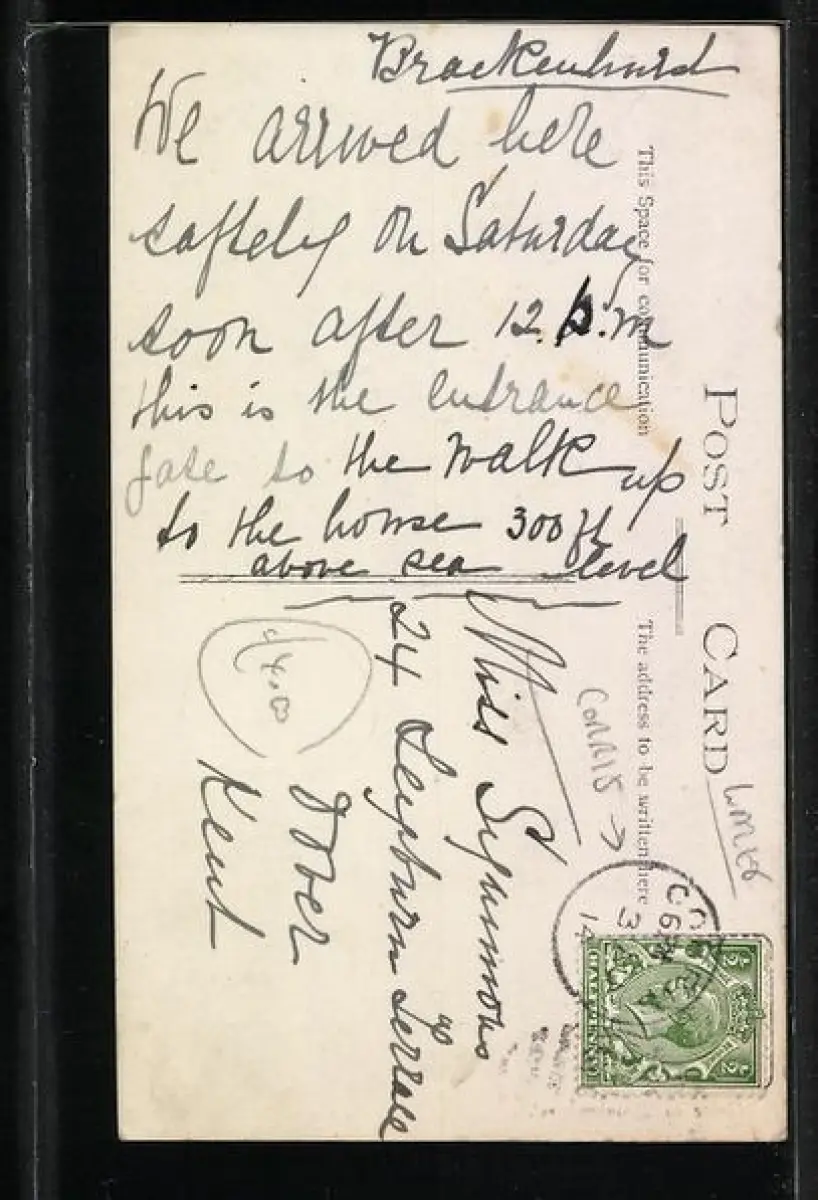 Brackenhurst
We arrived here
saftely on Saturday
soon after 12.p.m
this is the entrance
gate to the walk up
to the house 300 ft
above sea level
POST CARD
This Space for communication
The address to be written here
Miss Symmons
24 Leyburn Terrace
Dover
Kent
CORRIS →
14
HALFPENNY
½ ½